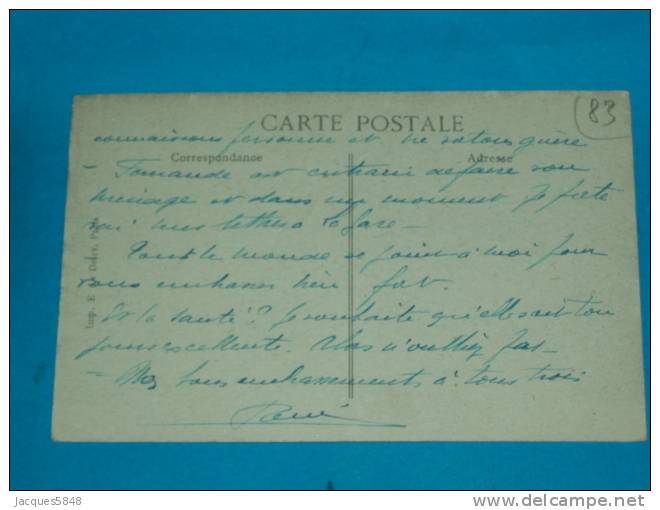 83
CARTE POSTALE
connaissons personne et ne sortons guère
Correspondance
Adresse
— est en train de faire son
ménage et dans un moment je
mes lettres à la gare —
Tout le monde se joint à moi pour
vous embrasser bien fort.
Et la santé ? Je souhaite qu'elle soit tou
jours excellente. n'oubliez pas —
— Mes bons embrassements à tous trois
Imp. E. Paris
Jacques5848
delcampe.net